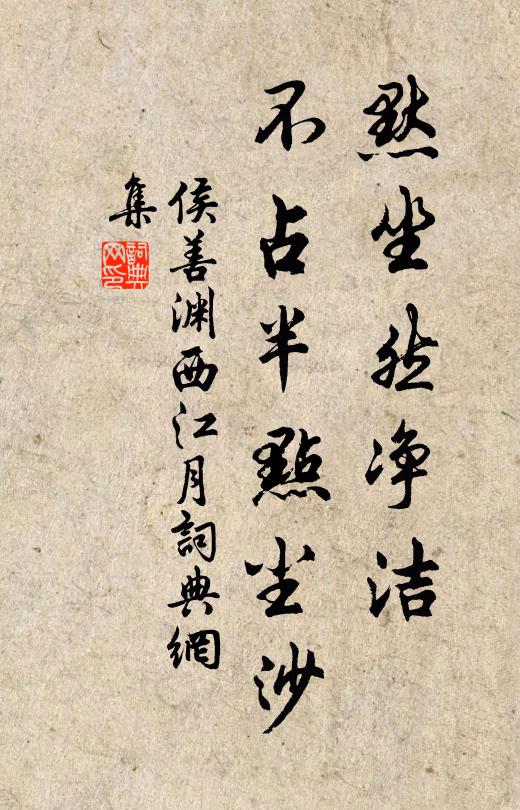 默坐然净洁
不占半點尘沙
侯善渊西江月詞典網
集
詞典网印